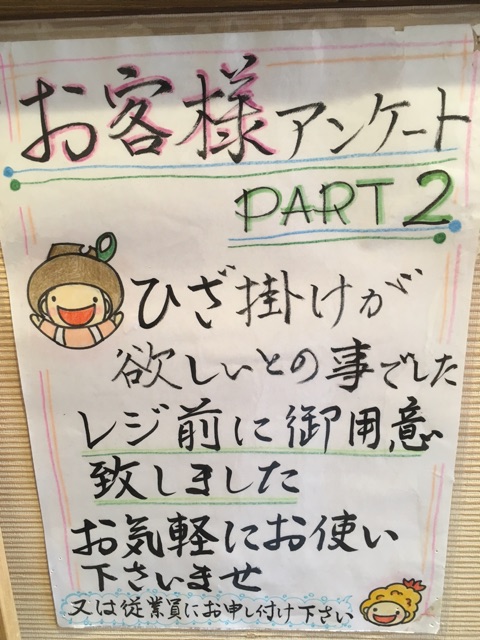 お客様アンケート
PART2
ひざ掛けが
欲しいとの事でした
レジ前に御用意
致しました
お気軽にお使い
下さいませ
又は従業員にお申し付け下さい